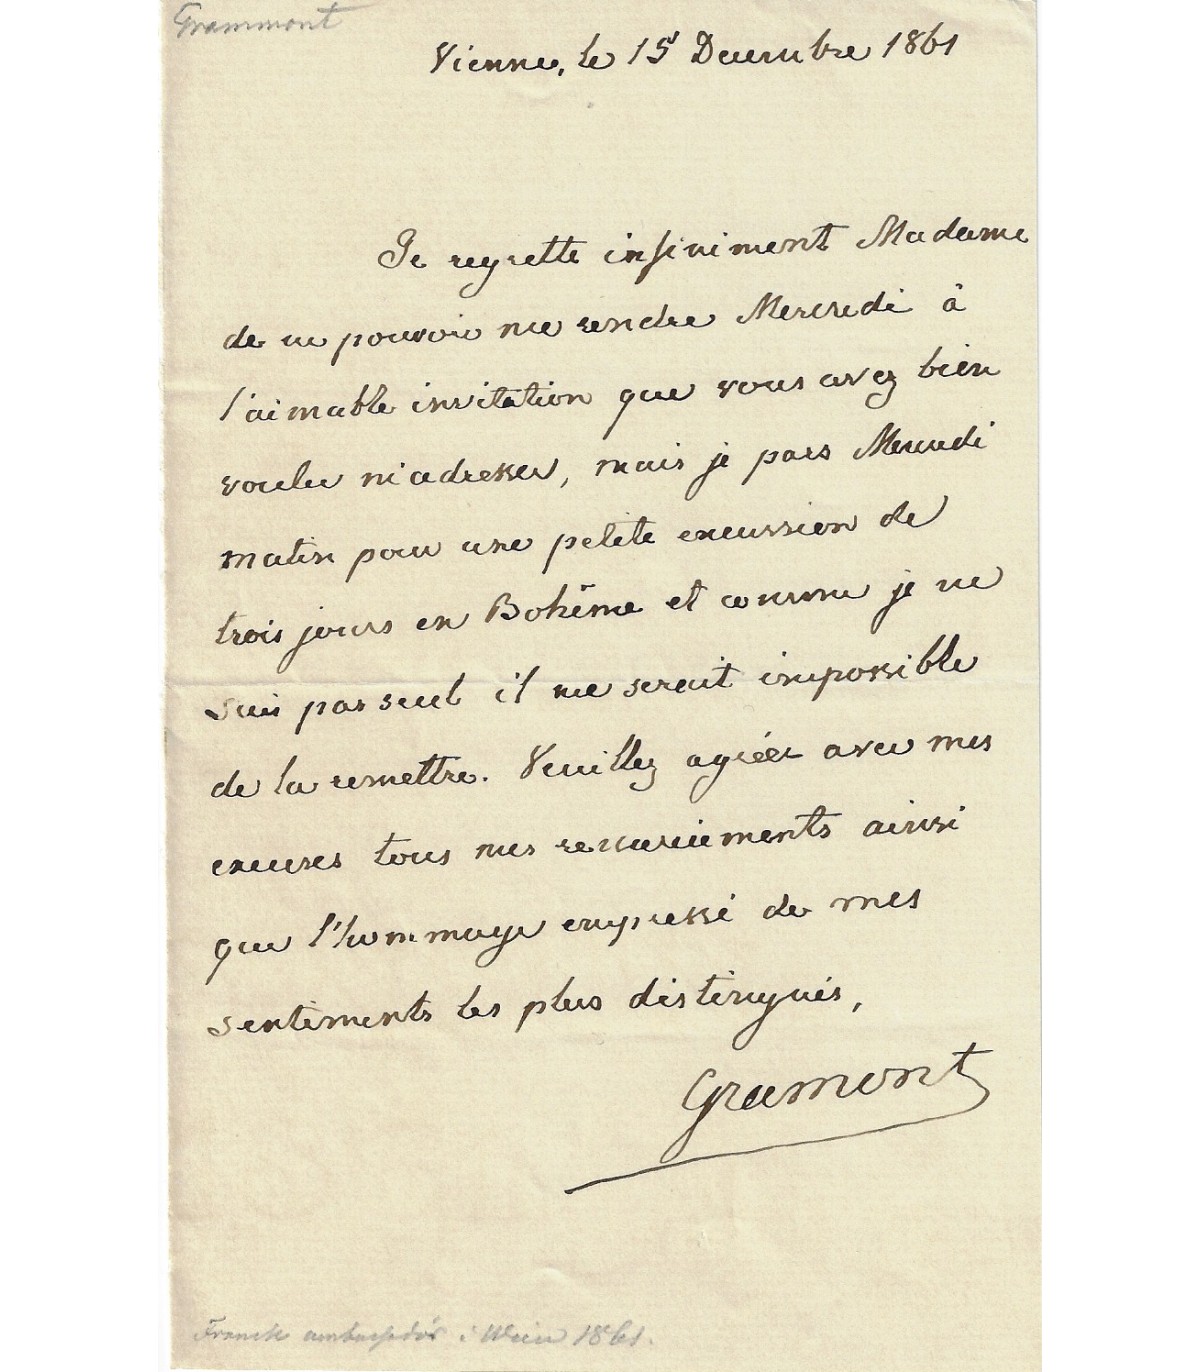 Grammont
Vienne, le 15 Decembre 1861
Je regrette infiniment Madame
de ne pouvoir me rendre Mercredi à
l'aimable invitation que vous avez bien
voulu m'adresser, mais je pars Mercredi
matin pour une petite excursion de
trois jours en Bohême et comme je ne
suis pas seul il me serait impossible
de la remettre. Veuillez agréer avec mes
excuses tous mes remerciements ainsi
que l'hommage empressé de mes
sentiments les plus distingués,
Gramont
Fransk ambassadör i Wien 1861.